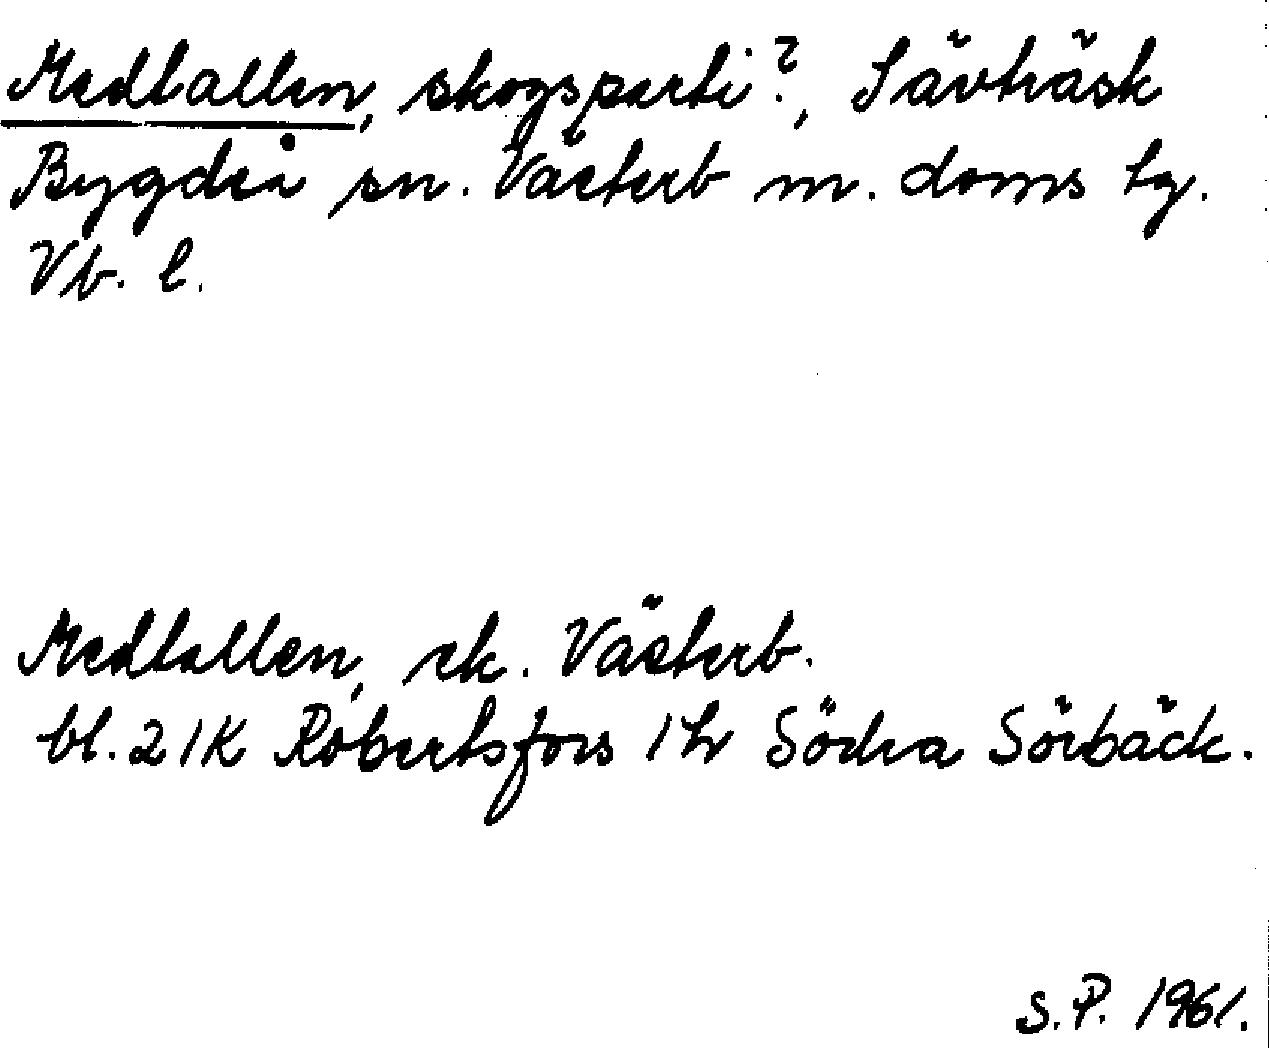 Medtallen, skogsparti?, Sävträsk
Bygdeå sn. Västerb m. doms tg.
Vb. l.
Medtallen, ek. Västerb.
bl. 21K Robertsfors 1 h Södra Sörbäck.
S.P. 1961.